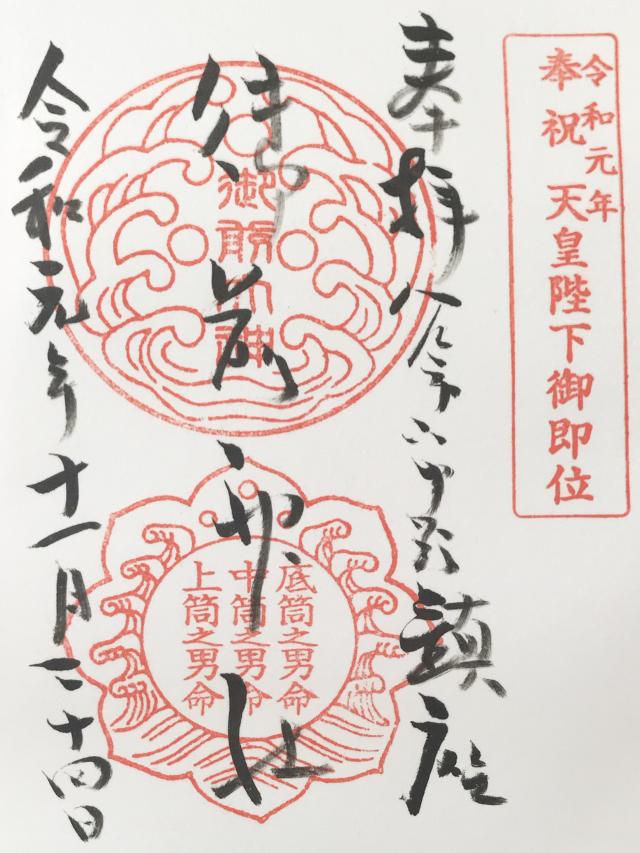 令和元年
奉祝 天皇陛下御即位
奉拝
鎮座
御前神社
底筒之男命
中筒之男命
上筒之男命
令和元年十一月二十四日